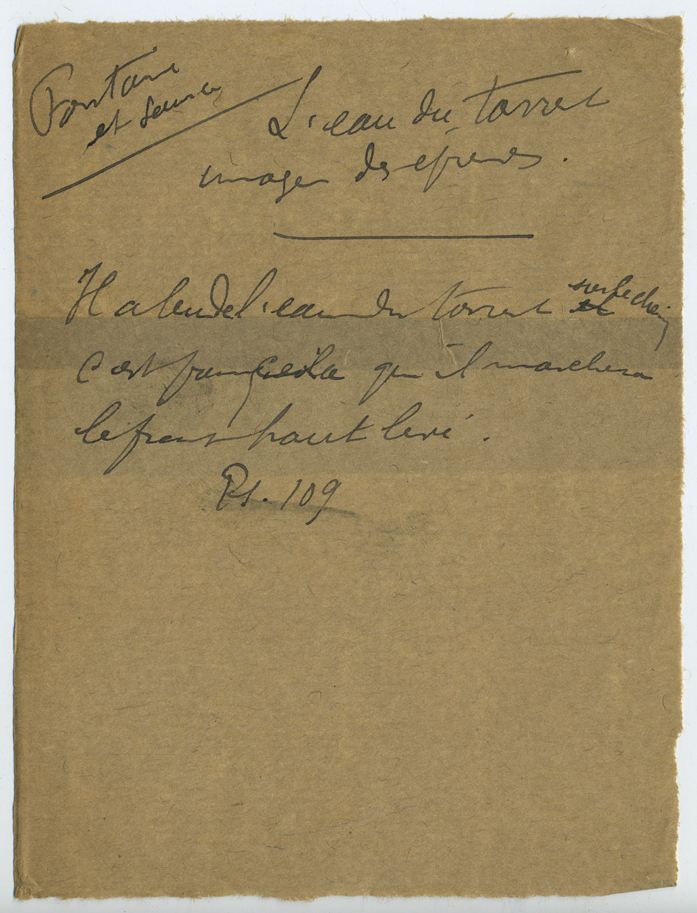 Fontaine
et source
L'eau du torrent
image des épreuves.
Il a bu de l'eau du torrent sur le chemin
c'est pourquoi la que il marchera
le front haut levé.
Ps. 109